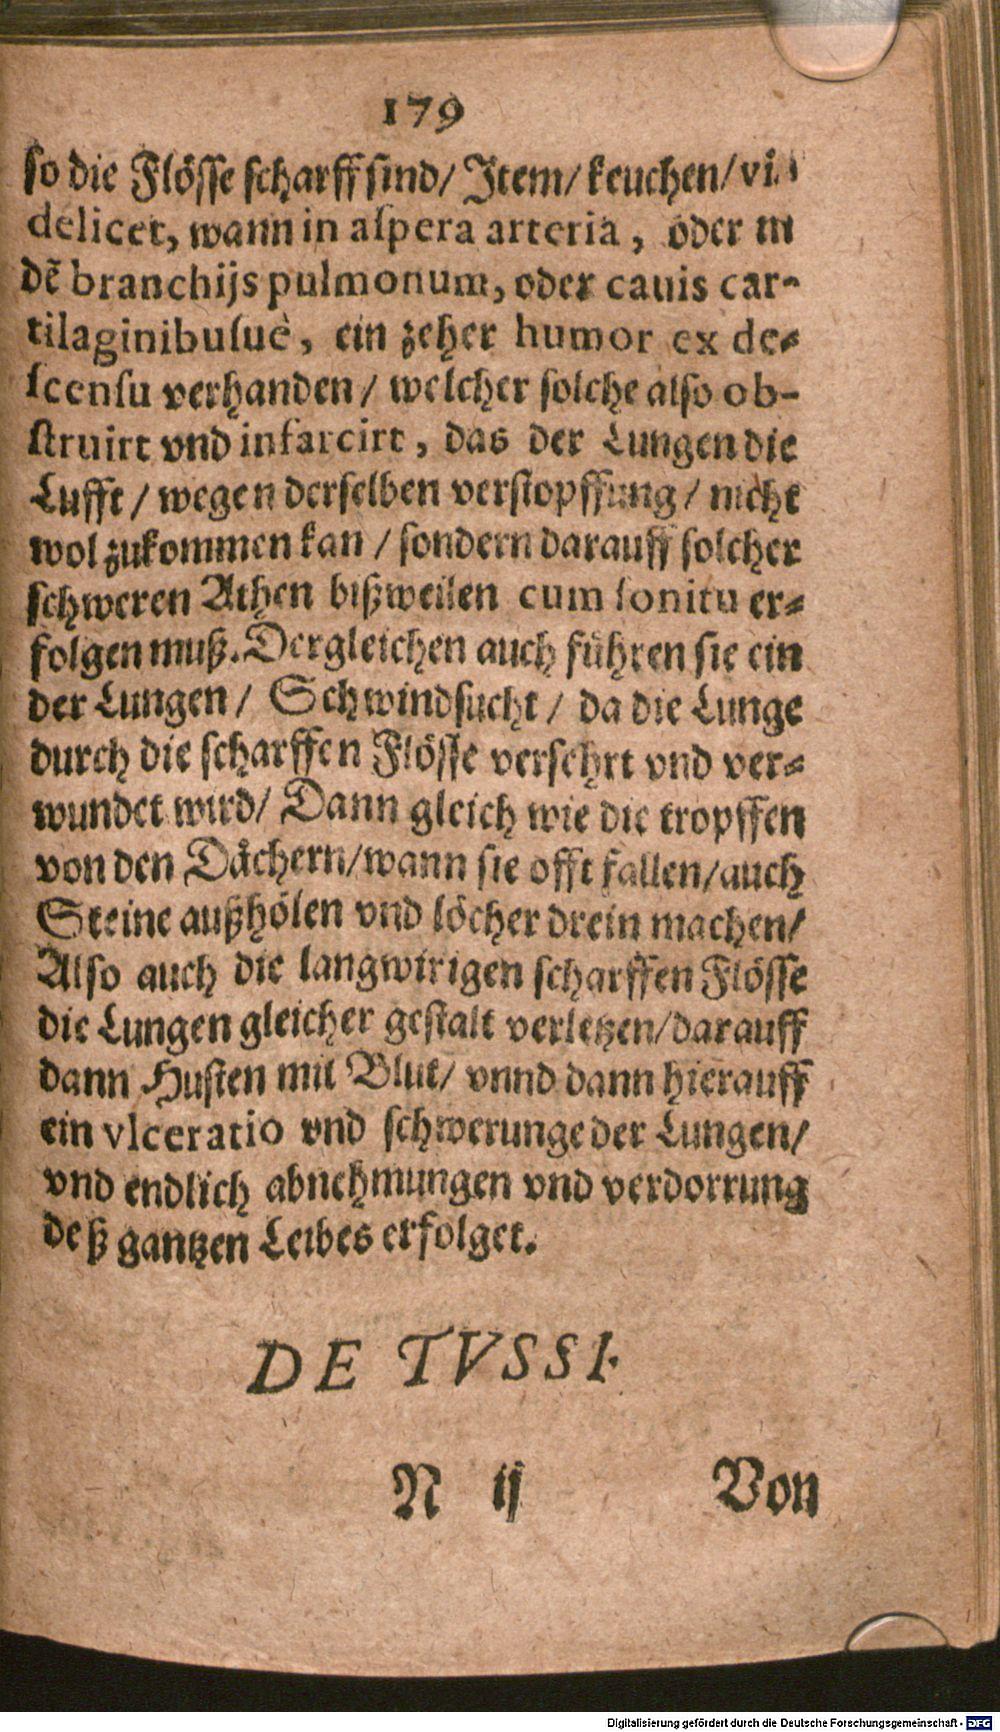 179
so die Flösse scharff sind/ Item/ keuchen/ vi-
delicet, wann in aspera arteria, oder in
dẽ branchijs pulmonum, oder cauis car-
tilaginibusuè, ein zeher humor ex de-
scensu verhanden/ welcher solche also ob-
struirt vnd infarcirt, das der Lungen die
Lufft/ wegen derselben verstopffung/ nicht
wol zukommen kan/ sondern darauff solcher
schweren Athen bißweilen cum sonitu er-
folgen muß. Dergleichen auch führen sie ein
der Lungen/ Schwindsucht/ da die Lunge
durch die scharffen Flösse versehrt vnd ver-
wundet wird/ Dann gleich wie die tropffen
von den Dächern/ wann sie offt fallen/ auch
Steine außhölen vnd löcher drein machen/
Also auch die langwirigen scharffen Flösse
die Lungen gleicher gestalt verletzen/ darauff
dann Husten mit Blut/ vnnd dann hierauff
ein vlceratio vnd schwerunge der Lungen/
vnd endlich abnehmungen vnd verdorrung
deß gantzen Leibes erfolget.
DE TVSSI.
N ij Von
Digitalisierung gefördert durch die Deutsche Forschungsgemeinschaft - DFG